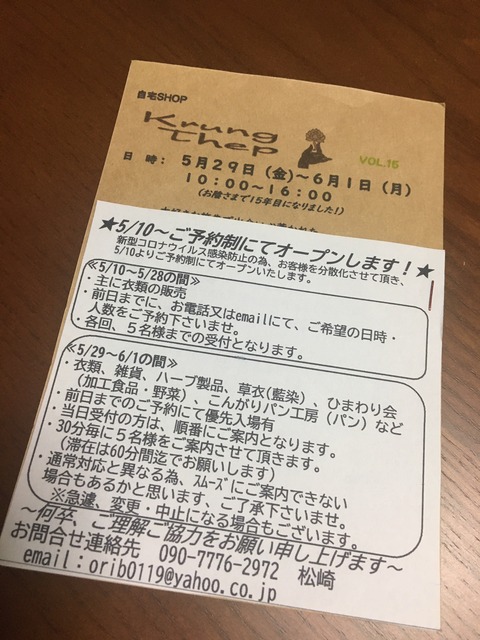 自宅SHOP
Krung Thep
VOL.15
日 時： 5月29日（金）～6月1日（月）
10：00～16：00
（お陰さまで15年目になりました！）
★5/10～ご予約制にてオープンします！★
新型コロナウイルス感染防止の為、お客様を分散化させて頂き、
5/10よりご予約制にてオープンいたします。
≪5/10～5/28の間≫
・主に衣類の販売
・前日までに、お電話又はemailにて、ご希望の日時・
人数をご予約下さいませ。
・各回、５名様までの受付となります。
≪5/29～6/1の間≫
・衣類、雑貨、ハーブ製品、草衣(藍染)、ひまわり会
（加工食品・野菜）、こんがりパン工房（パン）など
・前日までのご予約にて優先入場有
・当日受付の方は、順番にご案内となります。
・30分毎に５名様をご案内させて頂きます。
（滞在は60分間迄でお願いします）
・通常対応と異なる為、ｽﾑｰｽﾞにご案内できない
場合もあるかと思います、ご了承下さいませ。
※急遽、変更・中止になる場合もございます。
～何卒、ご理解ご協力をお願い申し上げます～
お問合せ連絡先 090-7776-2972 松崎
email：orib0119@yahoo.co.jp